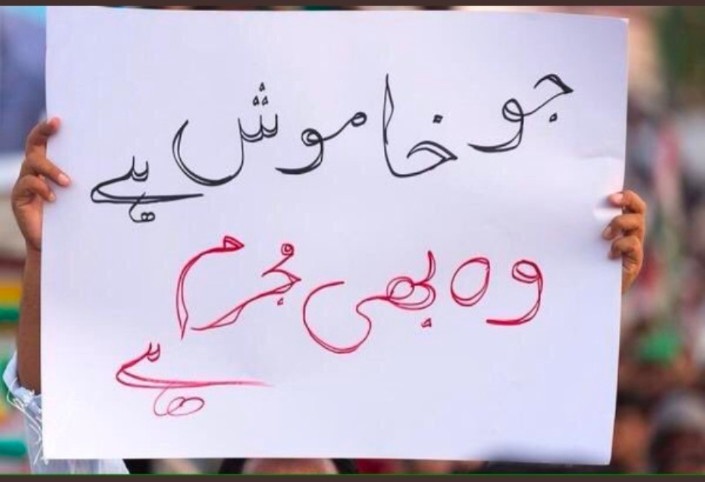 جو خاموش ہے
وہ بھی مجرم
ہے